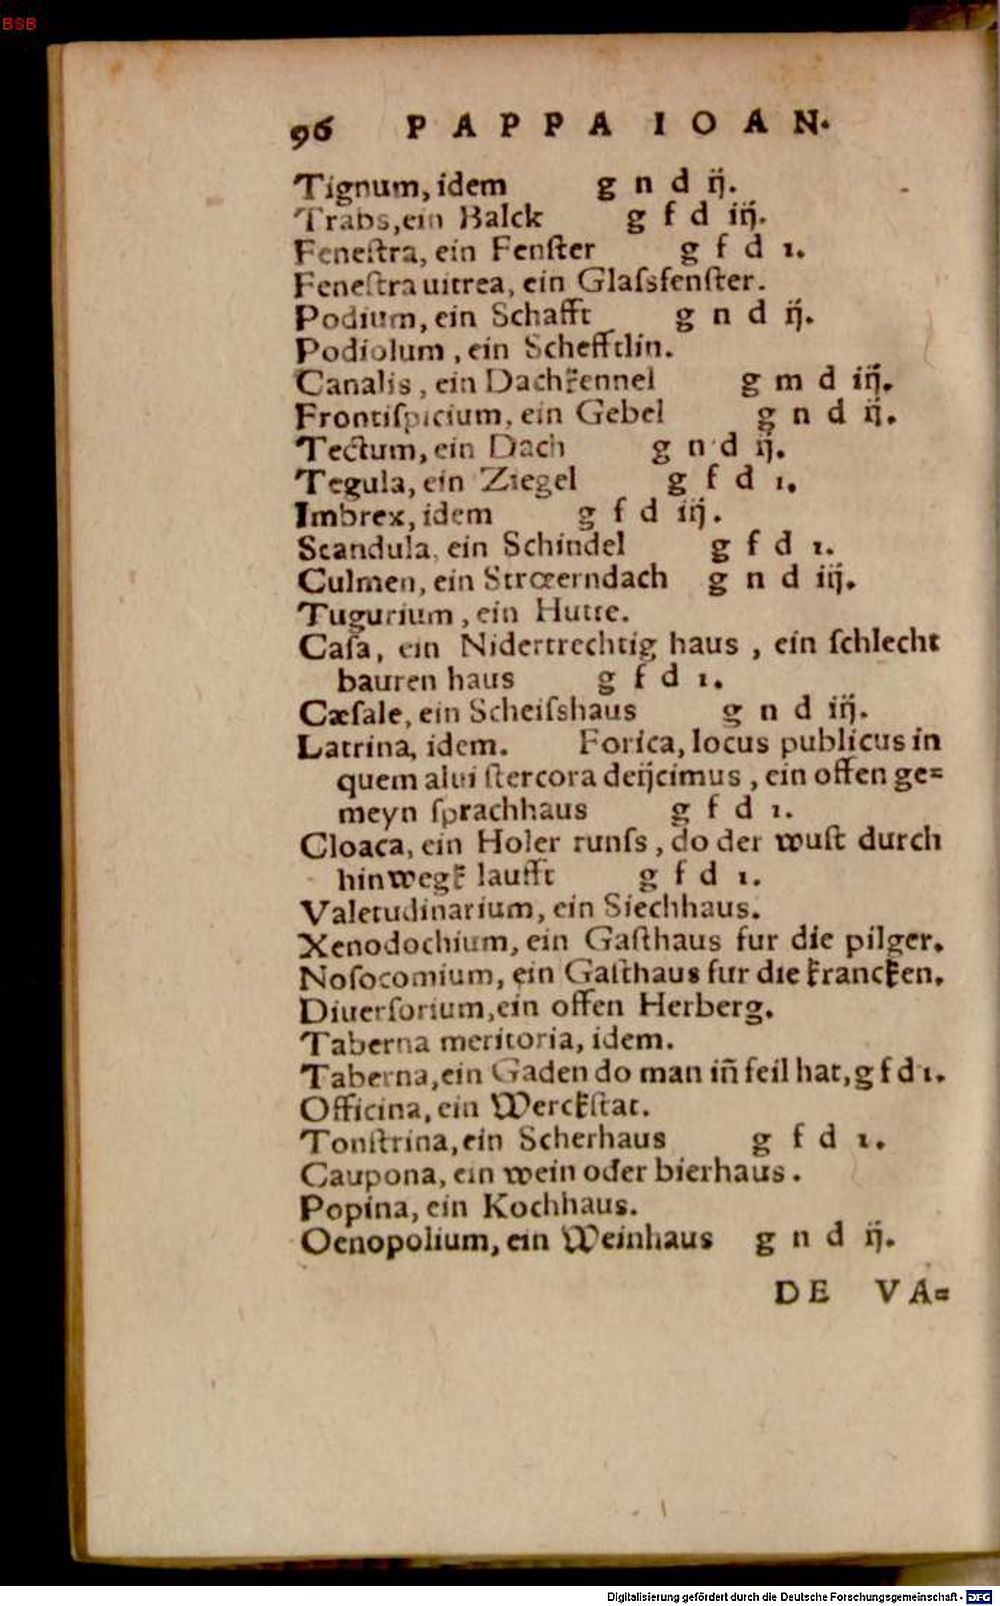 BSB
96 PAPPA IOAN.
Tignum, idem g n d ij.
Trabs, ein Balck g f d iij.
Feneſtra, ein Fenſter g f d 1.
Feneſtra uitrea, ein Glaſsfenſter.
Podium, ein Schafft g n d ij.
Podiolum, ein Schefftlin.
Canalis, ein Dachkennel g m d iij.
Frontiſpicium, ein Gebel g n d ij.
Tectum, ein Dach g n d ij.
Tegula, ein Ziegel g f d 1.
Imbrex, idem g f d iij.
Scandula, ein Schindel g f d 1.
Culmen, ein Strœerndach g n d iij.
Tugurium, ein Hutte.
Caſa, ein Nidertrechtig haus, ein ſchlecht
bauren haus g f d 1.
Cæſale, ein Scheiſshaus g n d iij.
Latrina, idem. Forica, locus publicus in
quem alui ſtercora deijcimus, ein offen ge=
meyn ſprachhaus g f d 1.
Cloaca, ein Holer runſs, do der wuſt durch
hinwegk laufft g f d 1.
Valetudinarium, ein Siechhaus.
Xenodochium, ein Gaſthaus fur die pilger.
Noſocomium, ein Gaſthaus fur die krancken.
Diuerſorium, ein offen Herberg.
Taberna meritoria, idem.
Taberna, ein Gaden do man iñ feil hat, g f d 1.
Officina, ein Werckſtat.
Tonſtrina, ein Scherhaus g f d 1.
Caupona, ein wein oder bierhaus.
Popina, ein Kochhaus.
Oenopolium, ein Weinhaus g n d ij.
DE VA=
Digitalisierung gefördert durch die Deutsche Forschungsgemeinschaft - DFG